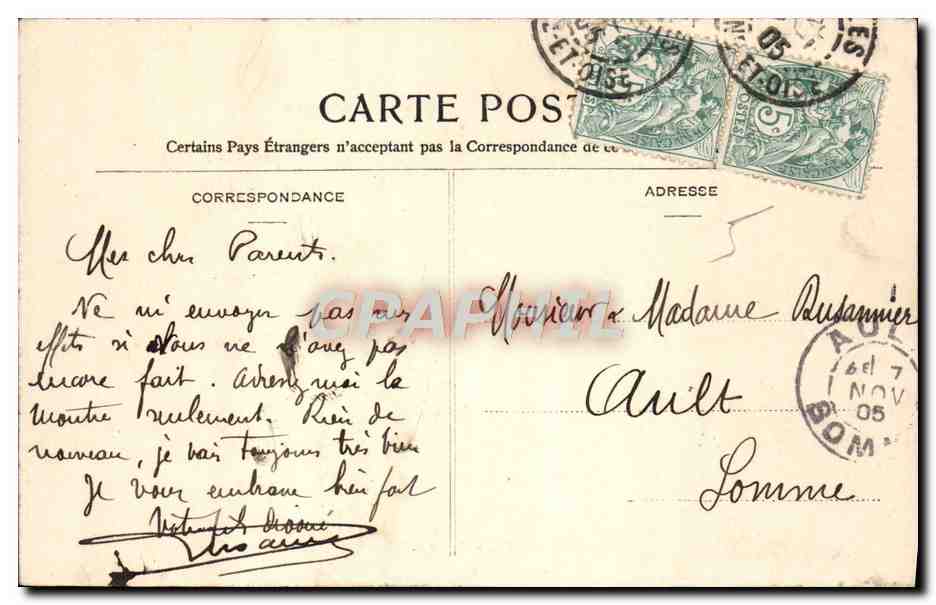 CARTE POST
Certains Pays Étrangers n'acceptant pas la Correspondance de ce
CORRESPONDANCE
Mes chers Parents.
Ne m'envoyez pas mes
effets si vous ne l'avez pas
encore fait. Adressez moi la
montre seulement. Rien de
nouveau, je vais toujours très bien
Je vous embrasse bien fort
Votre fils dévoué
ADRESSE
Monsieur & Madame Busannier
Ault
Somme
5
CPAPHIL
05
ET-OISE
05
ET-OISE
5c
POSTES
AUL
7
NOV
05
SOMM